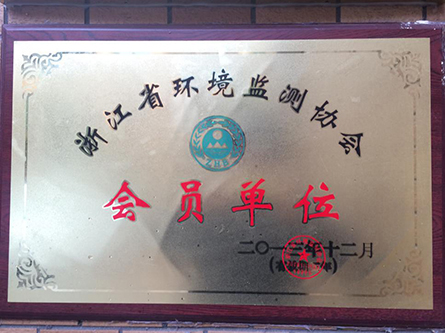 浙江省环境监测协会
会员单位
二〇一三年十二月